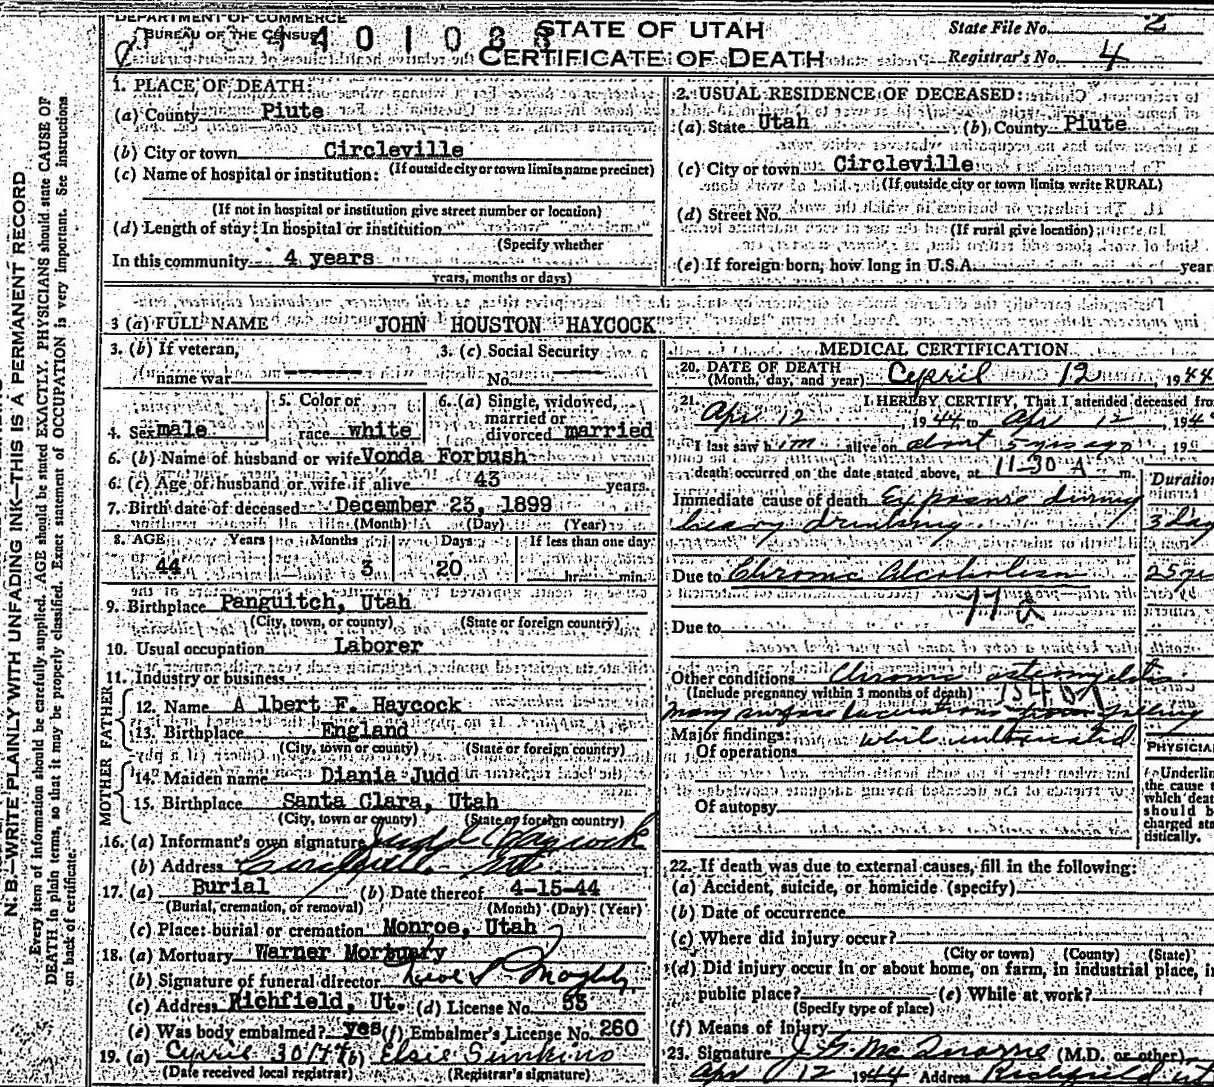 DEPARTMENT OF COMMERCE
BUREAU OF THE CENSUS
STATE OF UTAH
CERTIFICATE OF DEATH
State File No. 2
Registrar's No. 4
N. B.—WRITE PLAINLY WITH UNFADING INK—THIS IS A PERMANENT RECORD
Every item of information should be carefully supplied. AGE should be stated EXACTLY. PHYSICIANS should state CAUSE OF
DEATH in plain terms, so that it may be properly classified. Exact statement of OCCUPATION is very important. See instructions
on back of certificate.
1. PLACE OF DEATH:
(a) County Piute
(b) City or town Circleville
(If outside city or town limits name precinct)
(c) Name of hospital or institution:
(If not in hospital or institution give street number or location)
(d) Length of stay: In hospital or institution
(Specify whether
In this community 4 years
years, months or days)
2. USUAL RESIDENCE OF DECEASED:
(a) State Utah (b) County Piute
(c) City or town Circleville
(If outside city or town limits write RURAL)
(d) Street No.
(If rural give location)
(e) If foreign born, how long in U.S.A. year
3 (a) FULL NAME JOHN HOUSTON HAYCOCK
3. (b) If veteran,
name war
3. (c) Social Security
No.
4. Sex male
5. Color or
race white
6. (a) Single, widowed,
married or
divorced married
6. (b) Name of husband or wife Vonda Forbush
6. (c) Age of husband or wife if alive 43 years.
7. Birth date of deceased December 23, 1899
(Month) (Day) (Year)
8. AGE Years Months Days If less than one day
44 3 20 hr. min.
9. Birthplace Panguitch, Utah
(City, town, or county) (State or foreign country)
10. Usual occupation Laborer
11. Industry or business
FATHER
12. Name Albert F. Haycock
13. Birthplace England
(City, town or county) (State or foreign country)
MOTHER
14. Maiden name Diania Judd
15. Birthplace Santa Clara, Utah
(City, town or county) (State or foreign country)
16. (a) Informant's own signature Haycock
(b) Address Circleville Ut
17. (a) Burial (b) Date thereof 4-15-44
(Burial, cremation, or removal) (Month) (Day) (Year)
(c) Place: burial or cremation Monroe, Utah
18. (a) Mortuary Warner Mortuary
(b) Signature of funeral director
(c) Address Richfield, Ut. (d) License No. 53
(e) Was body embalmed? yes (f) Embalmer's License No. 260
19. (a) April 30/44 (b) Elsie Simkins
(Date received local registrar) (Registrar's signature)
MEDICAL CERTIFICATION
20. DATE OF DEATH
(Month, day, and year) April 12, 1944
21. I HEREBY CERTIFY, That I attended deceased from
Apr 12, 1944 to Apr 12, 194
I last saw him alive on about 5 yrs ago, 19
death occurred on the date stated above, at 11-30 A m.
Duration
Immediate cause of death Exposure during
heavy drinking 3 day
Due to Chronic Alcoholism 25 ye
77a
Due to
Other conditions Chronic osteomyelitis
(Include pregnancy within 3 months of death)
many surface lacerations from falling
Major findings: while intoxicated
Of operations
Of autopsy
PHYSICIA
Underlin
the cause t
which deat
should b
charged sta
tistically.
22. If death was due to external causes, fill in the following:
(a) Accident, suicide, or homicide (specify)
(b) Date of occurrence
(c) Where did injury occur?
(City or town) (County) (State)
(d) Did injury occur in or about home, on farm, in industrial place, in
public place? (e) While at work?
(Specify type of place)
(f) Means of injury
23. Signature J. G. Mc Quarrie (M.D. or other)
Apr 12 1944 Address Richfield Ut